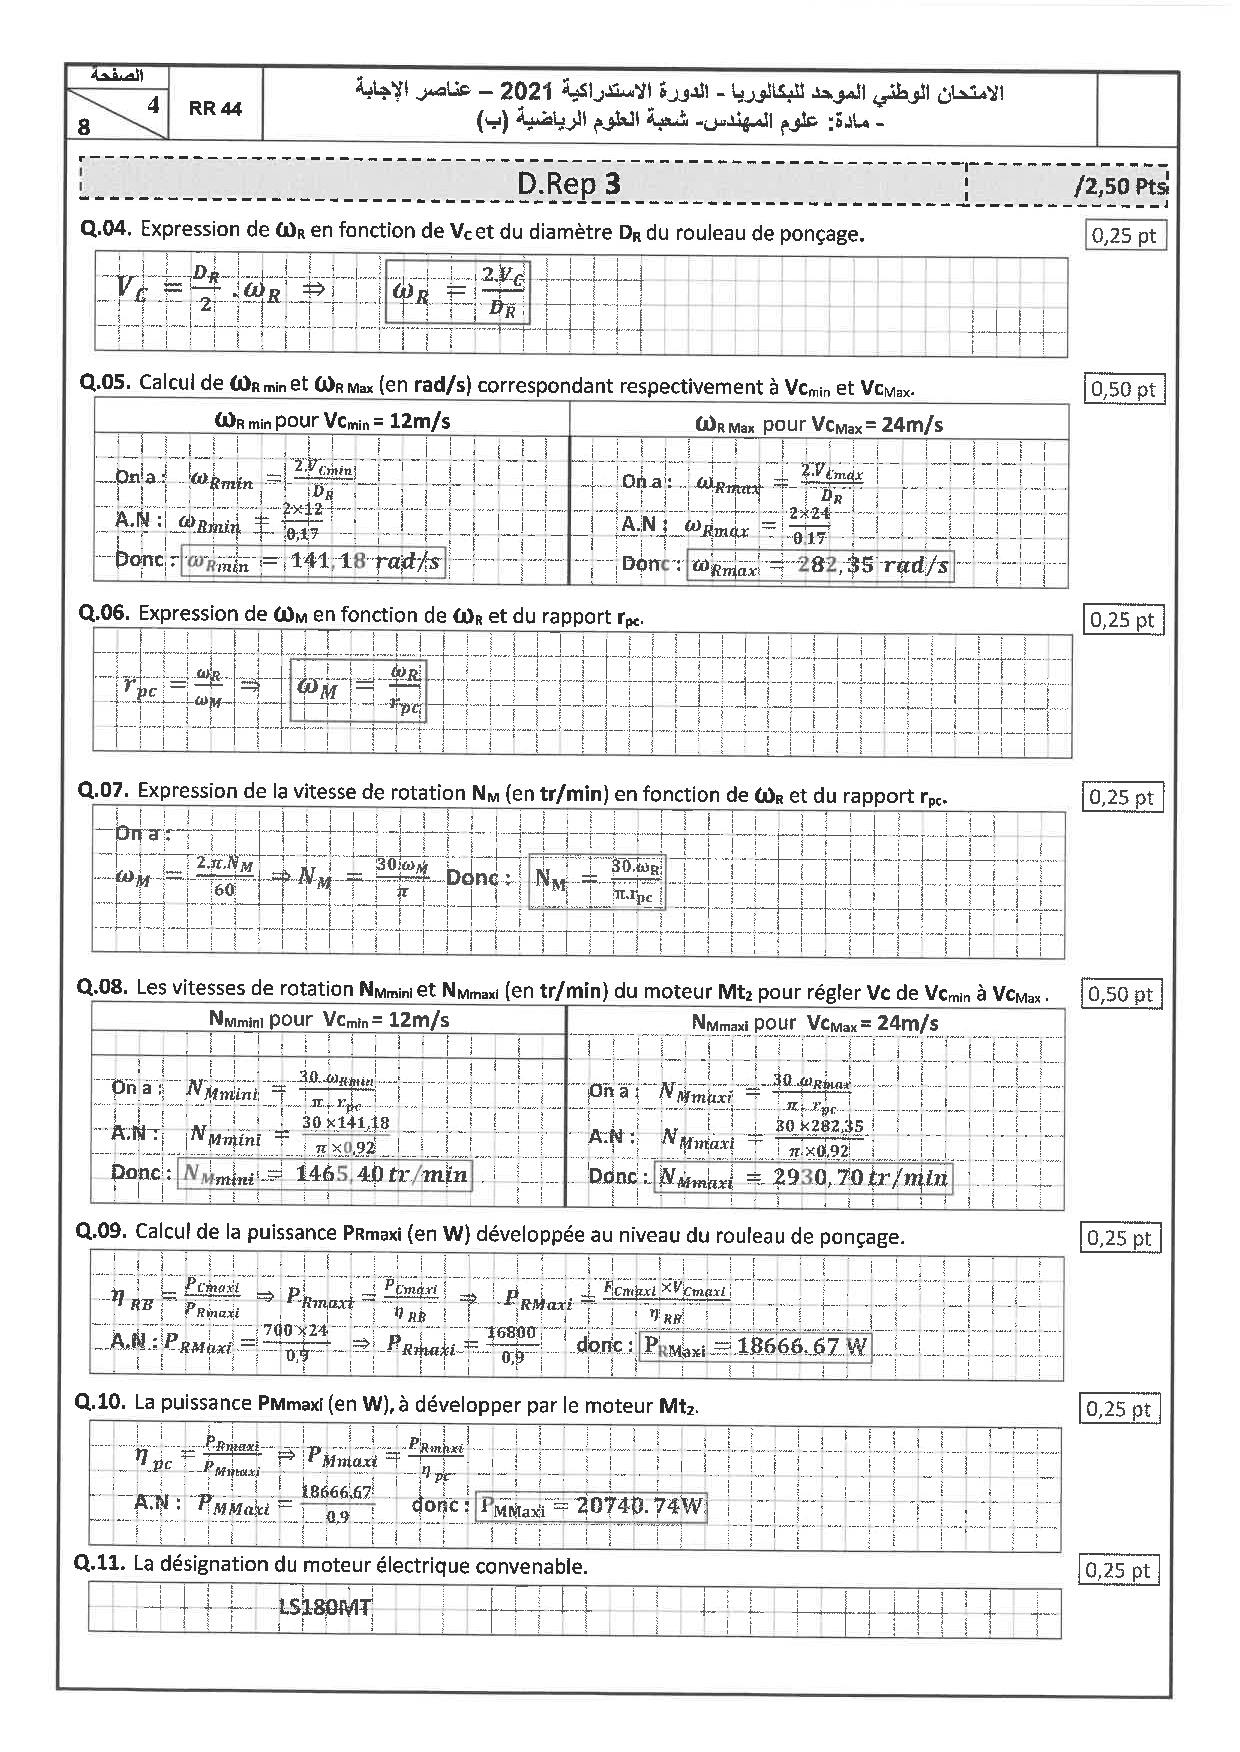 الصفحة
4
8
RR 44
الامتحان الوطني الموحد للبكالوريا - الدورة الاستدراكية 2021 – عناصر الإجابة
- مادة: علوم المهندس- شعبة العلوم الرياضية (ب)
D.Rep 3 /2,50 Pts
Q.04. Expression de ωR en fonction de Vc et du diamètre DR du rouleau de ponçage. 0,25 pt
V_C = D_R/2 . ω_R ⇒ ω_R = 2.V_C/D_R
Q.05. Calcul de ωR min et ωR Max (en rad/s) correspondant respectivement à Vcmin et VcMax. 0,50 pt
ωR min pour Vcmin = 12m/s
On a : ω_Rmin = 2.V_Cmin/D_R
A.N : ω_Rmin = 2×12/0,17
Donc : ω_Rmin = 141,18 rad/s
ωR Max pour VcMax = 24m/s
On a : ω_Rmax = 2.V_Cmax/D_R
A.N : ω_Rmax = 2×24/0,17
Donc : ω_Rmax = 282,35 rad/s
Q.06. Expression de ωM en fonction de ωR et du rapport rpc. 0,25 pt
r_pc = ω_R/ω_M ⇒ ω_M = ω_R/r_pc
Q.07. Expression de la vitesse de rotation NM (en tr/min) en fonction de ωR et du rapport rpc. 0,25 pt
On a :
ω_M = 2.π.N_M/60 ⇒ N_M = 30.ω_M/π Donc : N_M = 30.ω_R/π.r_pc
Q.08. Les vitesses de rotation NMmini et NMmaxi (en tr/min) du moteur Mt2 pour régler Vc de Vcmin à VcMax . 0,50 pt
NMmini pour Vcmin = 12m/s
On a : N_Mmini = 30 .ω_Rmin/π . r_pc
A.N : N_Mmini = 30 ×141,18/π ×0,92
Donc : N_Mmini = 1465,40 tr/min
NMmaxi pour VcMax = 24m/s
On a : N_Mmaxi = 30 .ω_Rmax/π . r_pc
A.N : N_Mmaxi = 30 ×282,35/π ×0,92
Donc : N_Mmaxi = 2930,70 tr/min
Q.09. Calcul de la puissance PRmaxi (en W) développée au niveau du rouleau de ponçage. 0,25 pt
η_RB = P_Cmaxi/P_Rmaxi ⇒ P_Rmaxi = P_Cmaxi/η_RB ⇒ P_RMaxi = F_Cmaxi ×V_Cmaxi/η_RB
A.N : P_RMaxi = 700 ×24/0,9 ⇒ P_Rmaxi = 16800/0,9 donc : P_RMaxi = 18666.67 W
Q.10. La puissance PMmaxi (en W), à développer par le moteur Mt2. 0,25 pt
η_pc = P_Rmaxi/P_Mmaxi ⇒ P_Mmaxi = P_Rmaxi/η_pc
A.N : P_MMaxi = 18666,67/0,9 donc : P_MMaxi = 20740.74W
Q.11. La désignation du moteur électrique convenable. 0,25 pt
LS180MT